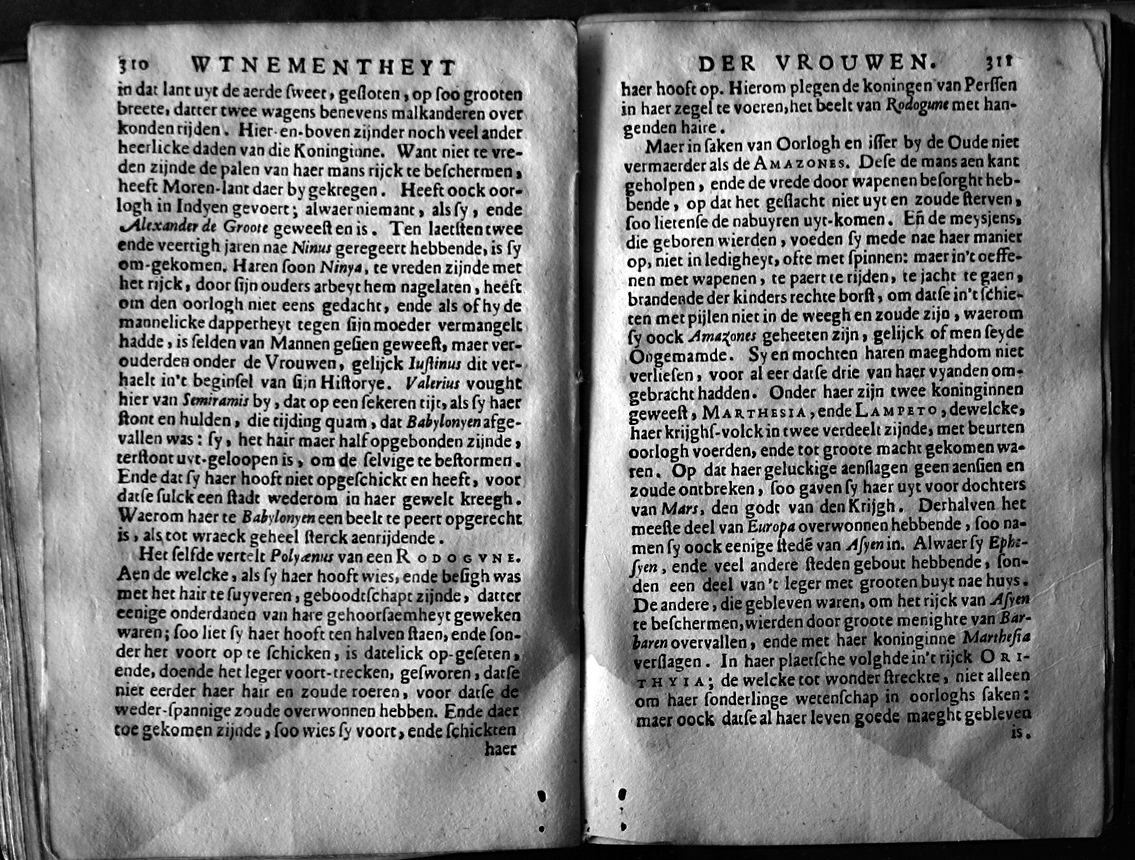 310 WTNEMENTHEYT
in dat lant uyt de aerde sweet, gesloten, op soo grooten
breete, datter twee wagens benevens malkanderen over
konden rijden. Hier-en-boven zijnder noch veel ander
heerlicke daden van die Koninginne. Want niet te vre-
den zijnde de palen van haer mans rijck te beschermen,
heeft Moren-lant daer by gekregen. Heeft oock oor-
logh in Indyen gevoert; alwaer niemant, als sy, ende
Alexander de Groote geweest en is. Ten laetsten twee
ende veertigh jaren nae Ninus geregeert hebbende, is sy
om-gekomen. Haren soon Ninya, te vreden zijnde met
het rijck, door sijn ouders arbeyt hem nagelaten, heeft
om den oorlogh niet eens gedacht, ende als of hy de
mannelicke dapperheyt tegen sijn moeder vermangelt
hadde, is selden van Mannen gesien geweest, maer ver-
ouderden onder de Vrouwen, gelijck Iustinus dit ver-
haelt in't beginsel van sijn Historye. Valerius vought
hier van Semiramis by, dat op een sekeren tijt, als sy haer
stont en hulden, die tijding quam, dat Babylonyen afge-
vallen was: sy, het hair maer half opgebonden zijnde,
terstont uyt-geloopen is, om de selvige te bestormen.
Ende dat sy haer hooft niet opgeschickt en heeft, voor
datse sulck een stadt wederom in haer gewelt kreegh.
Waerom haer te Babylonyen een beelt te peert opgerecht
is, als tot wraeck geheel sterck aenrijdende.
Het selfde vertelt Polyænus van een RODOGVNE.
Aen de welcke, als sy haer hooft wies, ende besigh was
met het hair te suyveren, gebootschapt zijnde, datter
eenige onderdanen van hare gehoorsaemheyt geweken
waren; soo liet sy haer hooft ten halven staen, ende son-
der het voort op te schicken, is datelick op-geseten,
ende, doende het leger voort-trecken, gesworen, datse
niet eerder haer hair en zoude roeren, voor datse de
weder-spannige zoude overwonnen hebben. Ende daer
toe gekomen zijnde, soo wies sy voort, ende schickten
haer
DER VROUWEN. 311
haer hooft op. Hierom plegen de koningen van Perssen
in haer zegel te voeren, het beelt van Rodogune met han-
genden haire.
Maer in saken van Oorlogh en isser by de Oude niet
vermaerder als de AMAZONES. Dese de mans aen kant
geholpen, ende de vrede door wapenen besorght heb-
bende, op dat het geslacht niet uyt en zoude sterven,
soo lietense de nabuyren uyt-komen. Eñ de meysjens,
die geboren wierden, voeden sy mede nae haer manier
op, niet in ledigheyt, ofte met spinnen: maer in't oeffe-
nen met wapenen, te paert te rijden, te jacht te gaen,
brandende der kinders rechte borst, om datse in't schie-
ten met pijlen niet in de weegh en zoude zijn, waerom
sy oock Amazones geheeten zijn, gelijck of men seyde
Ongemamde. Sy en mochten haren maeghdom niet
verliesen, voor al eer datse drie van haer vyanden om-
gebracht hadden. Onder haer zijn twee koninginnen
geweest, MARTHESIA, ende LAMPETO, dewelcke,
haer krijghs-volck in twee verdeelt zijnde, met beurten
oorlogh voerden, ende tot groote macht gekomen wa-
ren. Op dat haer geluckige aenslagen geen aensien en
zoude ontbreken, soo gaven sy haer uyt voor dochters
van Mars, den godt van den Krijgh. Derhalven het
meeste deel van Europa overwonnen hebbende, soo na-
men sy oock eenige stedē van Asyen in. Alwaer sy Ephe-
syen, ende veel andere steden gebout hebbende, son-
den een deel van't leger met grooten buyt nae huys.
De andere, die gebleven waren, om het rijck van Asyen
te beschermen, wierden door groote menighte van Bar-
baren overvallen, ende met haer koninginne Marthesia
verslagen. In haer plaetsche volghde in't rijck ORI-
THYIA; de welcke tot wonder streckte, niet alleen
om haer sonderlinge wetenschap in oorloghs saken:
maer oock datse al haer leven goede maeght gebleven
is.